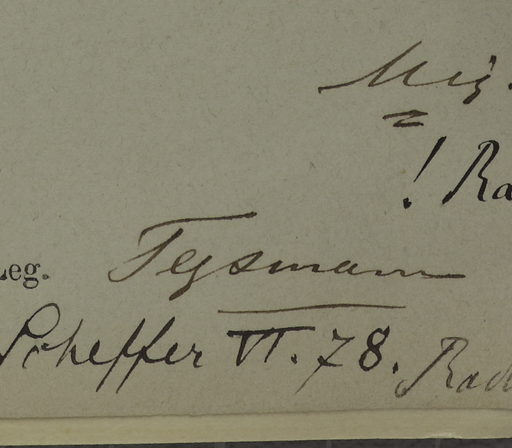 Miq.
! Ra
Leg. Tejsmann
Scheffer VI. 78. Rad